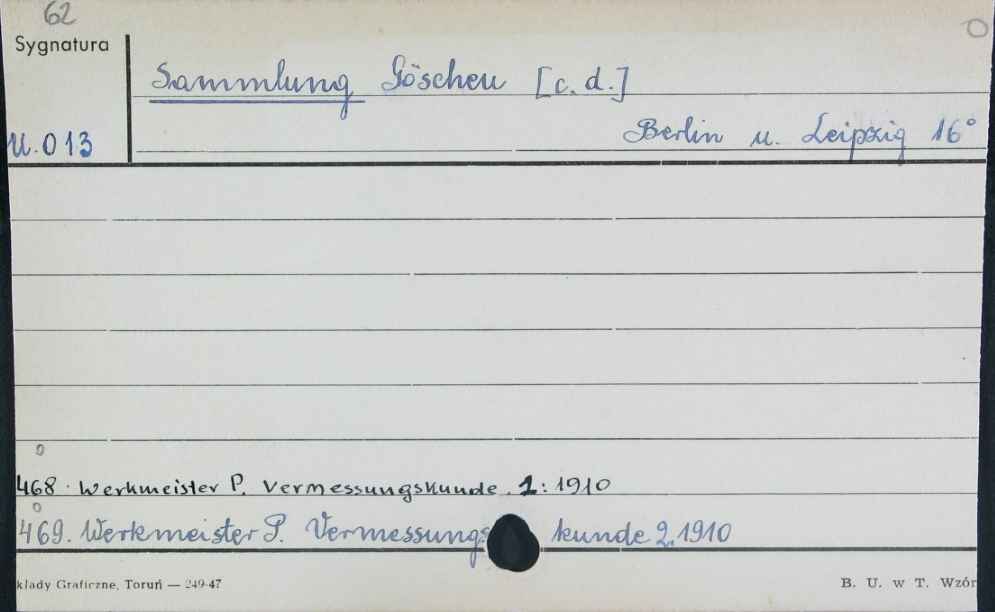 62
Sygnatura
Sammlung Göschen [c.d.]
U.013
Berlin u. Leipzig 16°
468. Werkmeister P. Vermessungskunde. 1: 1910
469. Werkmeister P. Vermessungskunde 2. 1910
kłady Graficzne, Toruń — 249-47
B. U. w T. Wzór